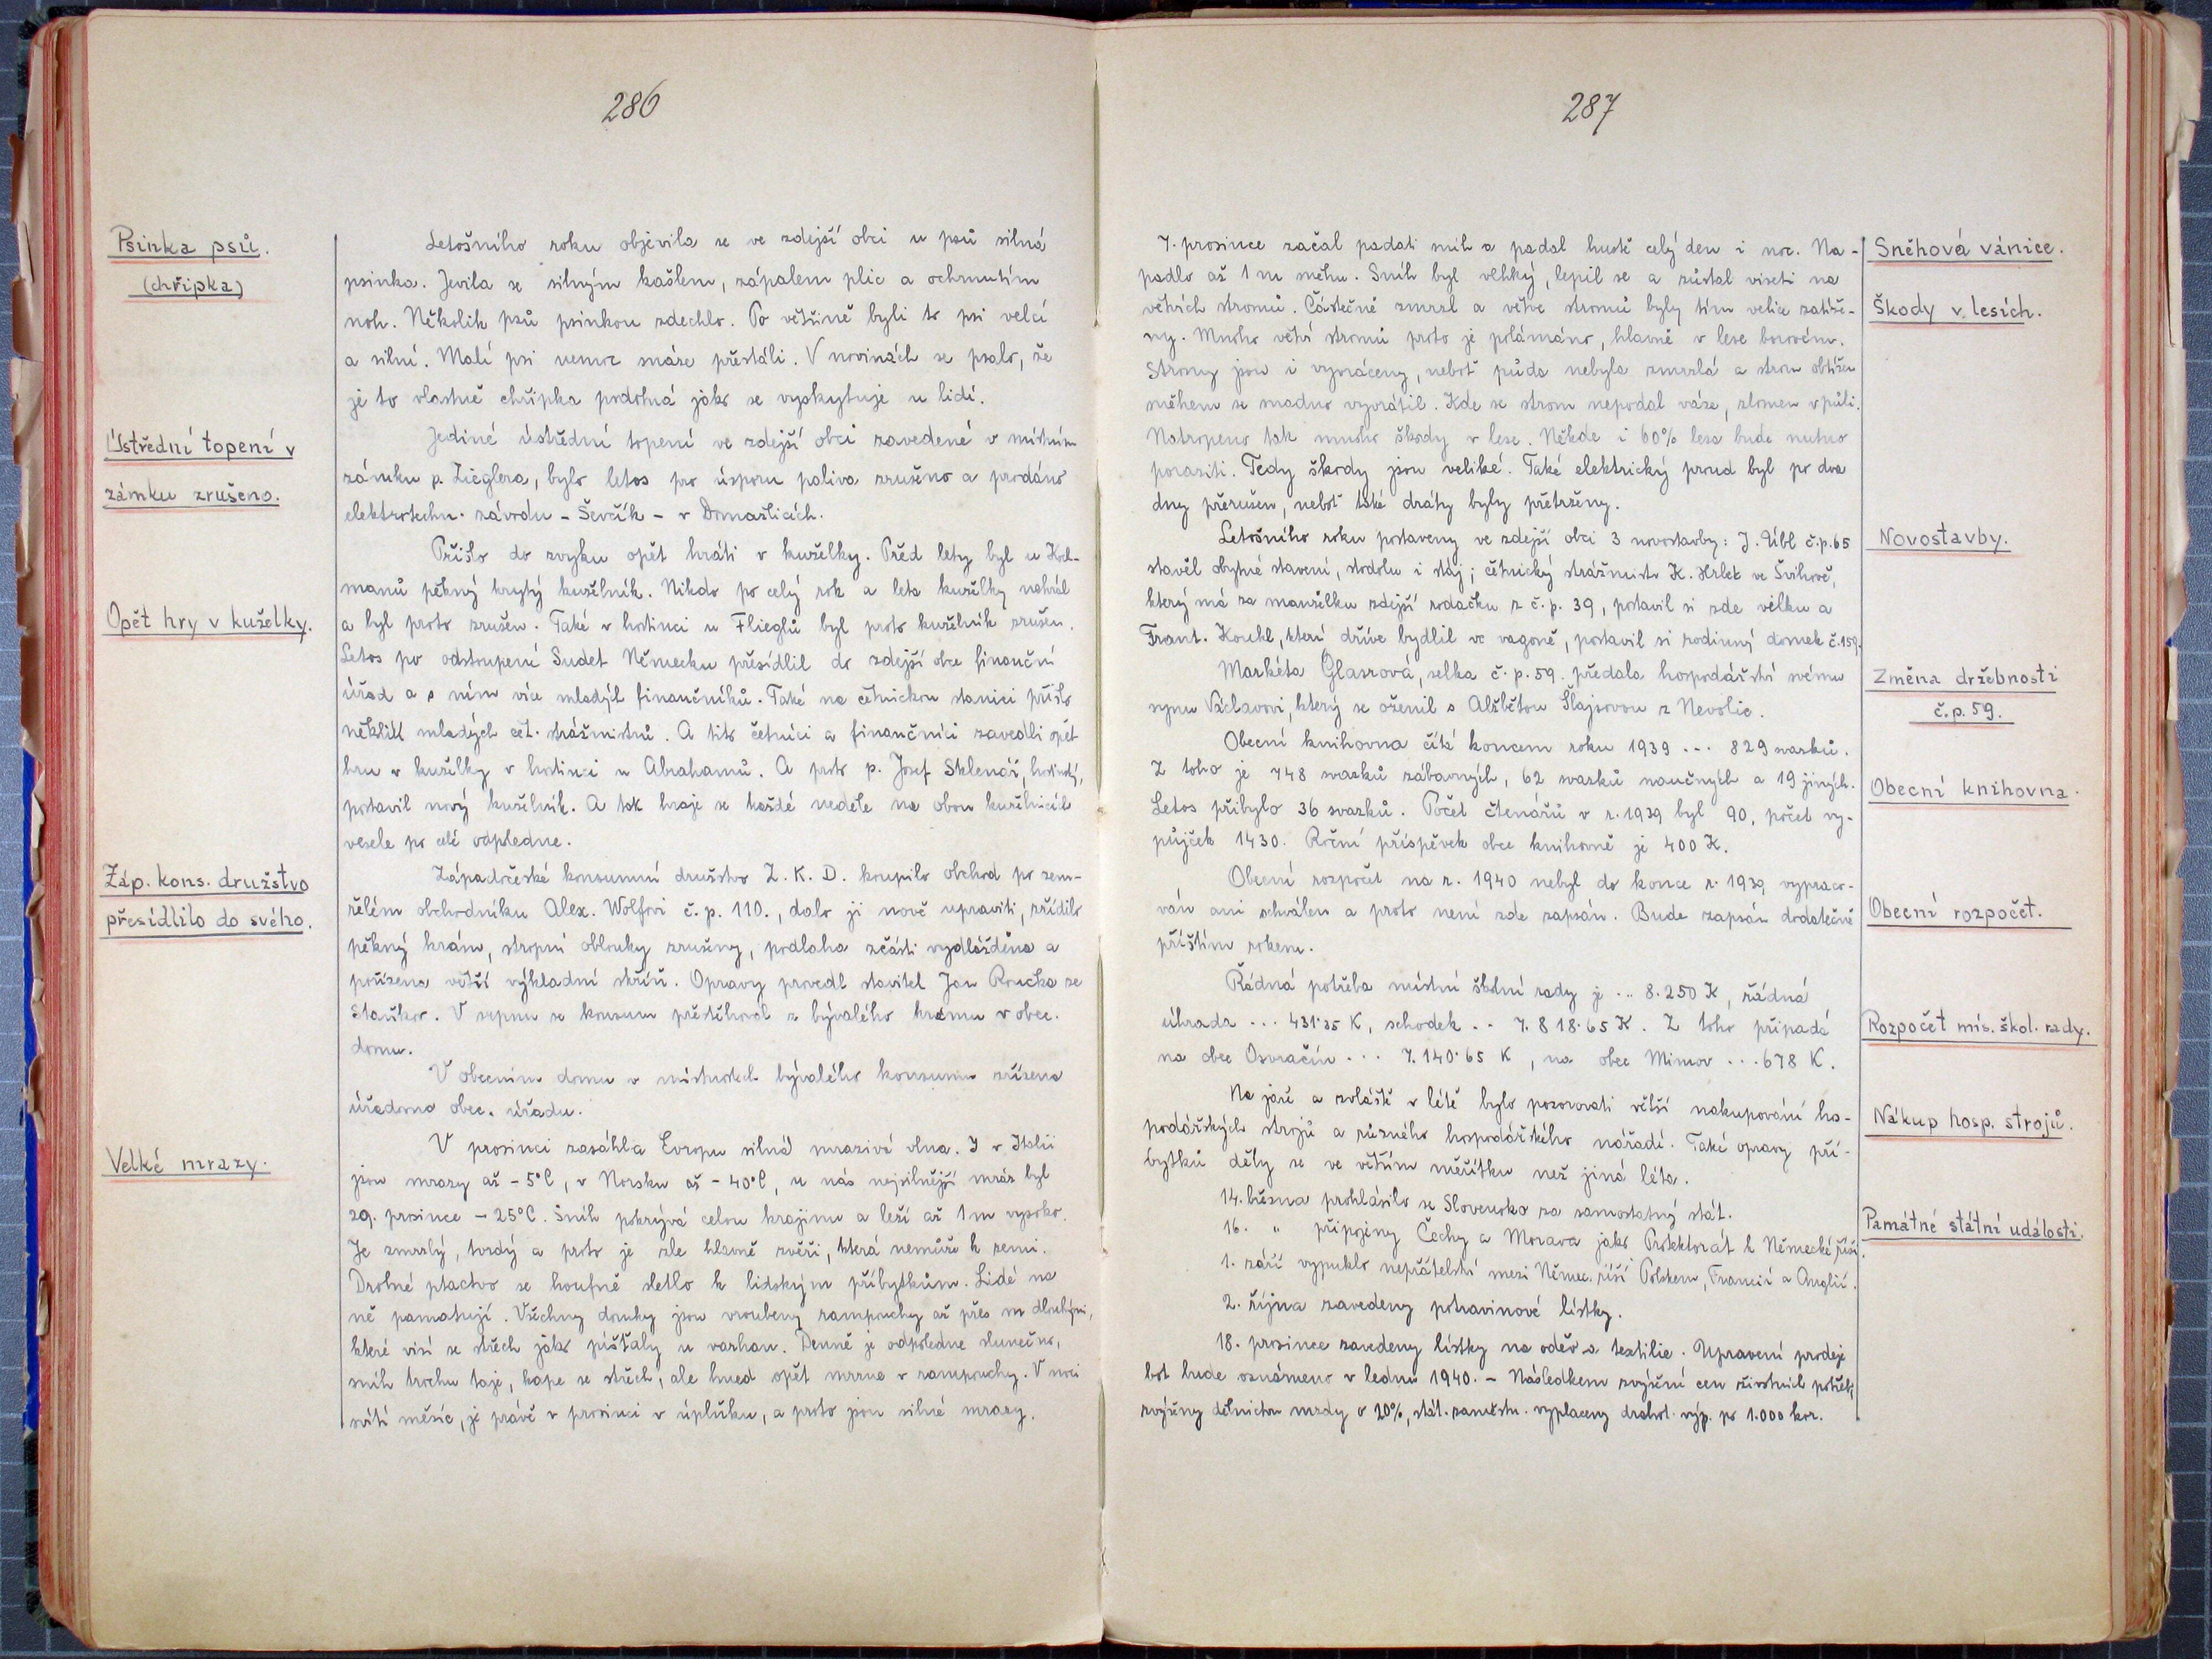 286
Psinka psů.
(chřipka)
Letošního roku objevila se ve zdejší obci u psů silná
psinka. Jevila se silným kašlem, zápalem plic a ochrnutím
noh. Několik psů psinkou zdechlo. Po většině byli to psi velcí
a silní. Malí psi nemoc snáze přestáli. V novinách se psalo, že
je to vlastně chřipka podobná jako se vyskytuje u lidí.
Ústřední topení v
zámku zrušeno.
Jediné ústřední topení ve zdejší obci zavedené v místním
zámku p. Zieglera, bylo letos pro úsporu paliva zrušeno a prodáno
elektrotechn. závodu - Ševčík - v Domažlicích.
Opět hry v kuželky.
Přišlo do zvyku opět hráti v kuželky. Před lety byl u Kol-
manů pěkný krytý kuželník. Nikdo po celý rok a léta kuželky nehrál
a byl proto zrušen. Také v hostinci u Flieglů byl proto kuželník zrušen.
Letos po odstoupení Sudet Německu přesídlil do zdejší obce finanční
úřad a s ním více mladých finančníků. Také na četnickou stanici přišlo
několik mladých čet. strážmistrů. A tito četníci a finančníci zavedli opět
hru v kuželky v hostinci u Abrahamů. A proto p. Josef Sklenář, hostinský,
postavil nový kuželník. A tak hraje se každé neděle na obou kuželnících
vesele po celé odpoledne.
Záp. kons. družstvo
přesídlilo do svého.
Západočeské konsumní družstvo Z. K. D. koupilo obchod po zem-
řelém obchodníku Alex. Wolfovi č. p. 110., dalo jí nově upraviti, zřídilo
pěkný krám, stropní oblouky zrušeny, podlaha zčásti vydlážděna a
pořízena větší výkladní skříň. Opravy provedl stavitel Jan Roučka ze
Staňkov. V srpnu se konsum přestěhoval z bývalého krámu v obec.
domu.
V obecním domu v místnostech bývalého konsumu zřízena
úřadovna obec. úřadu.
Velké mrazy.
V prosinci zasáhla Evropu silná mrazivá vlna. I v Italii
jsou mrazy až - 5°C, v Norsku až - 40°C, u nás nejsilnější mráz byl
29. prosince - 25°C. Sníh pokrývá celou krajinu a leží až 1 m vysoko.
Je zmrzlý, tvrdý a proto je zle hlavně zvěři, která nemůže k zemi.
Drobné ptactvo se houfně sletlo k lidským příbytkům. Lidé na
ně pamatují. Všechny domky jsou vroubeny rampouchy až přes m dlouhými,
které visí se střech jako píšťaly u varhan. Denně je odpoledne slunečno,
sníh trochu taje, kape se střech, ale hned opět mrzne v rampouchy. V noci
svítí měsíc, je právě v prosinci v úplňku, a proto jsou silné mrazy.
287
7. prosince začal padati sníh a padal hustě celý den i noc. Na-
padlo až 1 m sněhu. Sníh byl vlhký, lepil se a zůstal viseti na
větvích stromů. Částečně zmrzl a větve stromů byly tím velice zatíže-
ny. Mnoho větví stromů proto je polámáno, hlavně v lese borovém.
Stromy jsou i vyvráceny, neboť půda nebyla zmrzlá a strom obtížen
sněhem se snadno vyvrátil. Kde se strom nepodal váze, zlomen v půli.
Natropeno tak mnoho škody v lese. Někde i 60% lesa bude nutno
poraziti. Tedy škody jsou veliké. Také elektrický proud byl po dva
dny přerušen, neboť také dráty byly přetrženy.
Sněhová vánice.
Škody v lesích.
Letošního roku postaveny ve zdejší obci 3 novostavby: J. Úbl č.p. 65
stavěl obytné stavení, stodolu i stáj; četnický strážmistr K. Hrlek ve Švihově,
který má za manželku zdejší rodačku z č. p. 39, postavil si zde vilku a
Frant. Kouhl, který dříve bydlil ve vagoně, postavil si rodinný domek č.159.
Novostavby.
Markéta Glasrová, selka č. p. 59. předala hospodářství svému
synu Václavovi, který se oženil s Alžbětou Šlajsovou z Nevolic.
Změna držebnosti
č. p. 59.
Obecní knihovna čítá koncem roku 1939 ... 829 svazků.
Z toho je 748 svazků zábavných, 62 svazků naučných a 19 jiných.
Letos přibylo 36 svazků. Počet čtenářů v r. 1939 byl 90, počet vy-
půjček 1430. Roční příspěvek obce knihovně je 400 K.
Obecní knihovna.
Obecní rozpočet na r. 1940 nebyl do konce r. 1939 vypraco-
ván ani schválen a proto není zde zapsán. Bude zapsán dodatečně
příštím rokem.
Obecní rozpočet.
Řádná potřeba místní školní rady je ... 8.250 K, řádná
úhrada ... 431·35 K, schodek .. 7.818·65 K. Z toho připadá
na obec Osvračín ... 7.140·65 K, na obec Mimov ... 678 K.
Rozpočet mís. škol. rady.
Na jaře a zvláště v létě bylo pozorovati větší nakupování ho-
podářských strojů a různého hospodářského nářadí. Také opravy pří-
bytků děly se ve větším měřítku než jiná léta.
Nákup hosp. strojů.
14. března prohlásilo se Slovensko za samostatný stát.
16. " připojeny Čechy a Morava jako Protektorát k Německé říši.
1. září vypuklo nepřátelství mezi Němec. říší Polskem, Francií a Anglií.
2. října zavedeny potravinové lístky.
18. prosince zavedeny lístky na oděv a textilie. Upravení prodeje
bot bude oznámeno v lednu 1940. - Následkem zvýšení cen životních potřeb,
zvýšeny dělnictvu mzdy o 20%, stát. zaměstn. vyplaceny drahot. výp. po 1.000 kor.
Památné státní události.